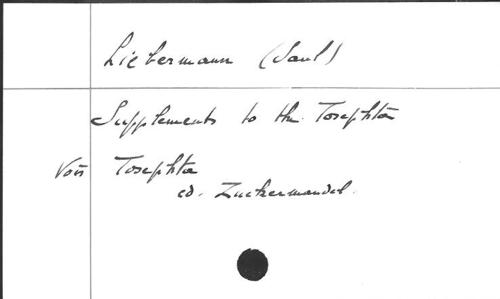 Liebermann (Saul)
Supplements to the Tosephta
Voir Tosephta
ed. Zuckermandel.